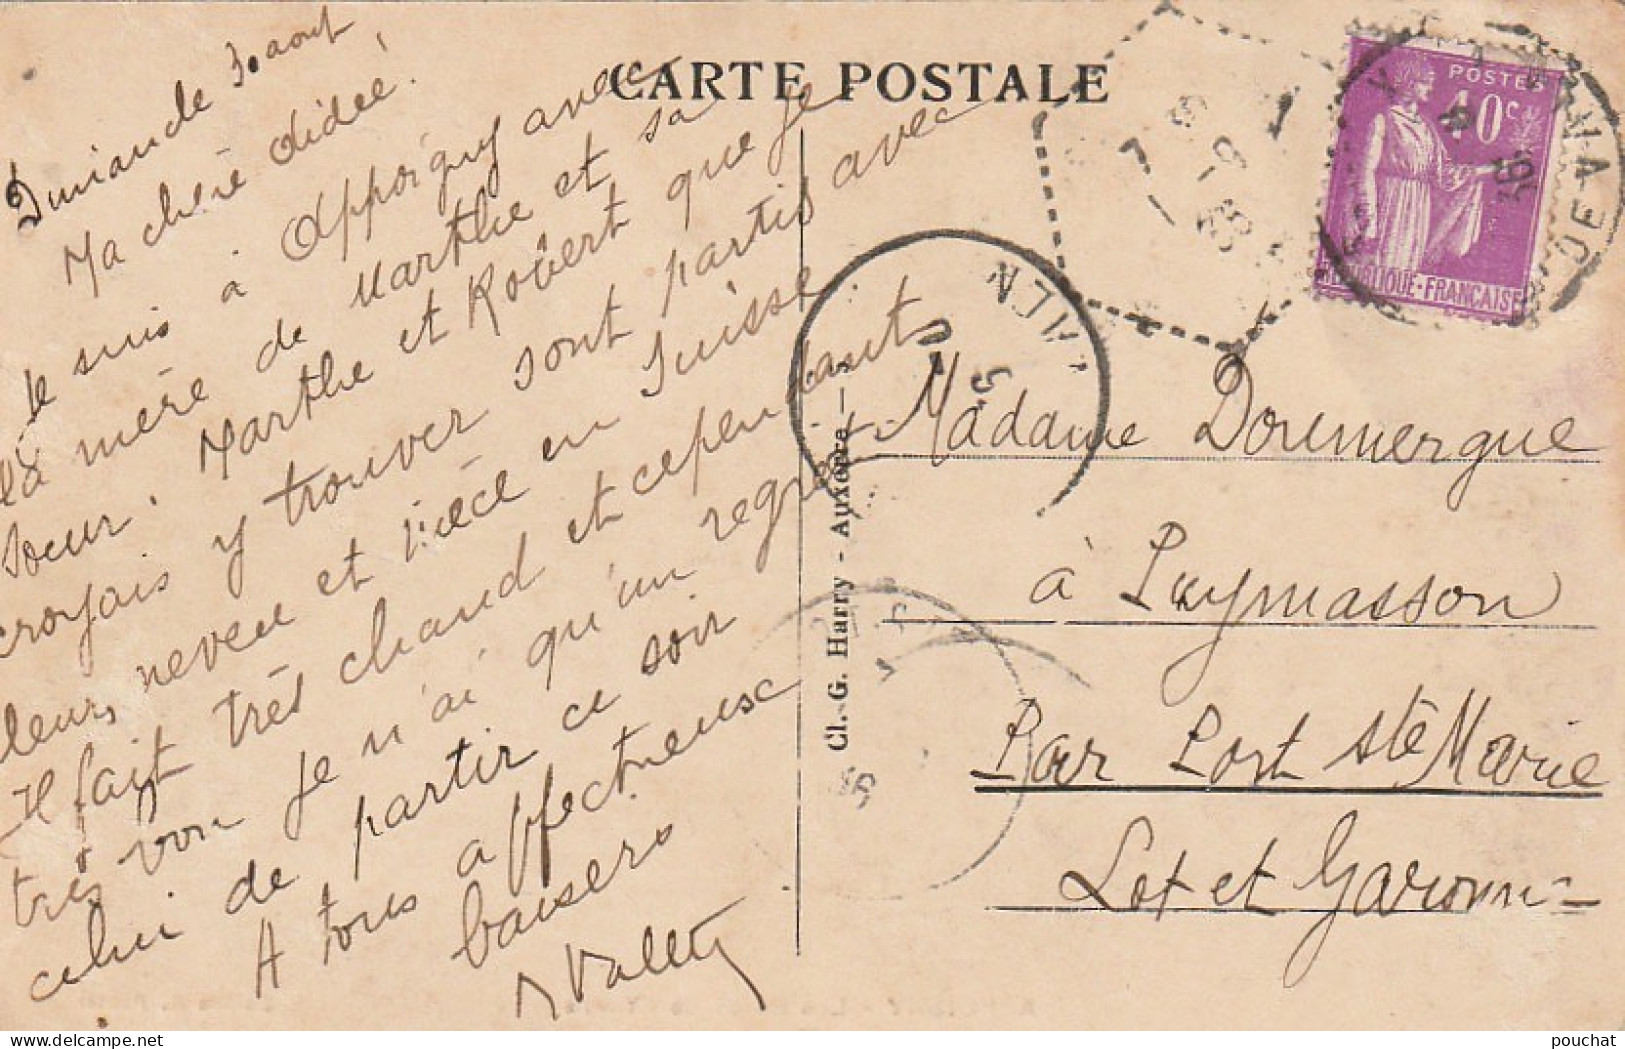 CARTE POSTALE
Dimanche 3 aout
Ma chère Didée,
Je suis à Appoigny avec
la mère de Marthe et sa
soeur. Marthe et Robert que je
croyais y trouver sont partis avec
leurs neveu et nièce en Suisse
Il fait très chaud et cependant
très bon je n'ai qu'un regret
celui de partir ce soir
A tous affectueux
baisers
Madame Doumergue
à Puymasson
Par Port Ste Marie
Lot et Garonne
Cl. G. Harry - Auxerre
POSTES
40c
REPUBLIQUE-FRANÇAISE
pouchat www.delcampe.net